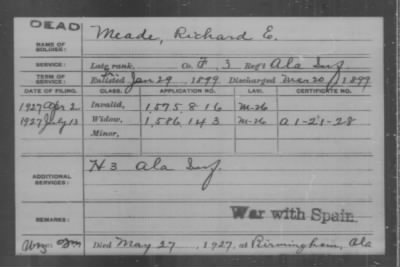 DEAD
NAME OF SOLDIER: Meade, Richard E.
SERVICE: Late rank, Co. F, 3 Reg't Ala Inf
TERM OF SERVICE: Enlisted Jan 29, 1899 Discharged Mar 20, 1899
DATE OF FILING. CLASS. APPLICATION NO. LAW. CERTIFICATE NO.
1927 Apr 2 Invalid, 1,575,816 M-26
1927 July 13 Widow, 1,586,143 M-26 A 1-21-28
Minor,
ADDITIONAL SERVICES: H 3 Ala Inf.
REMARKS: War with Spain
Died May 27, 1927, at Birmingham, Ala